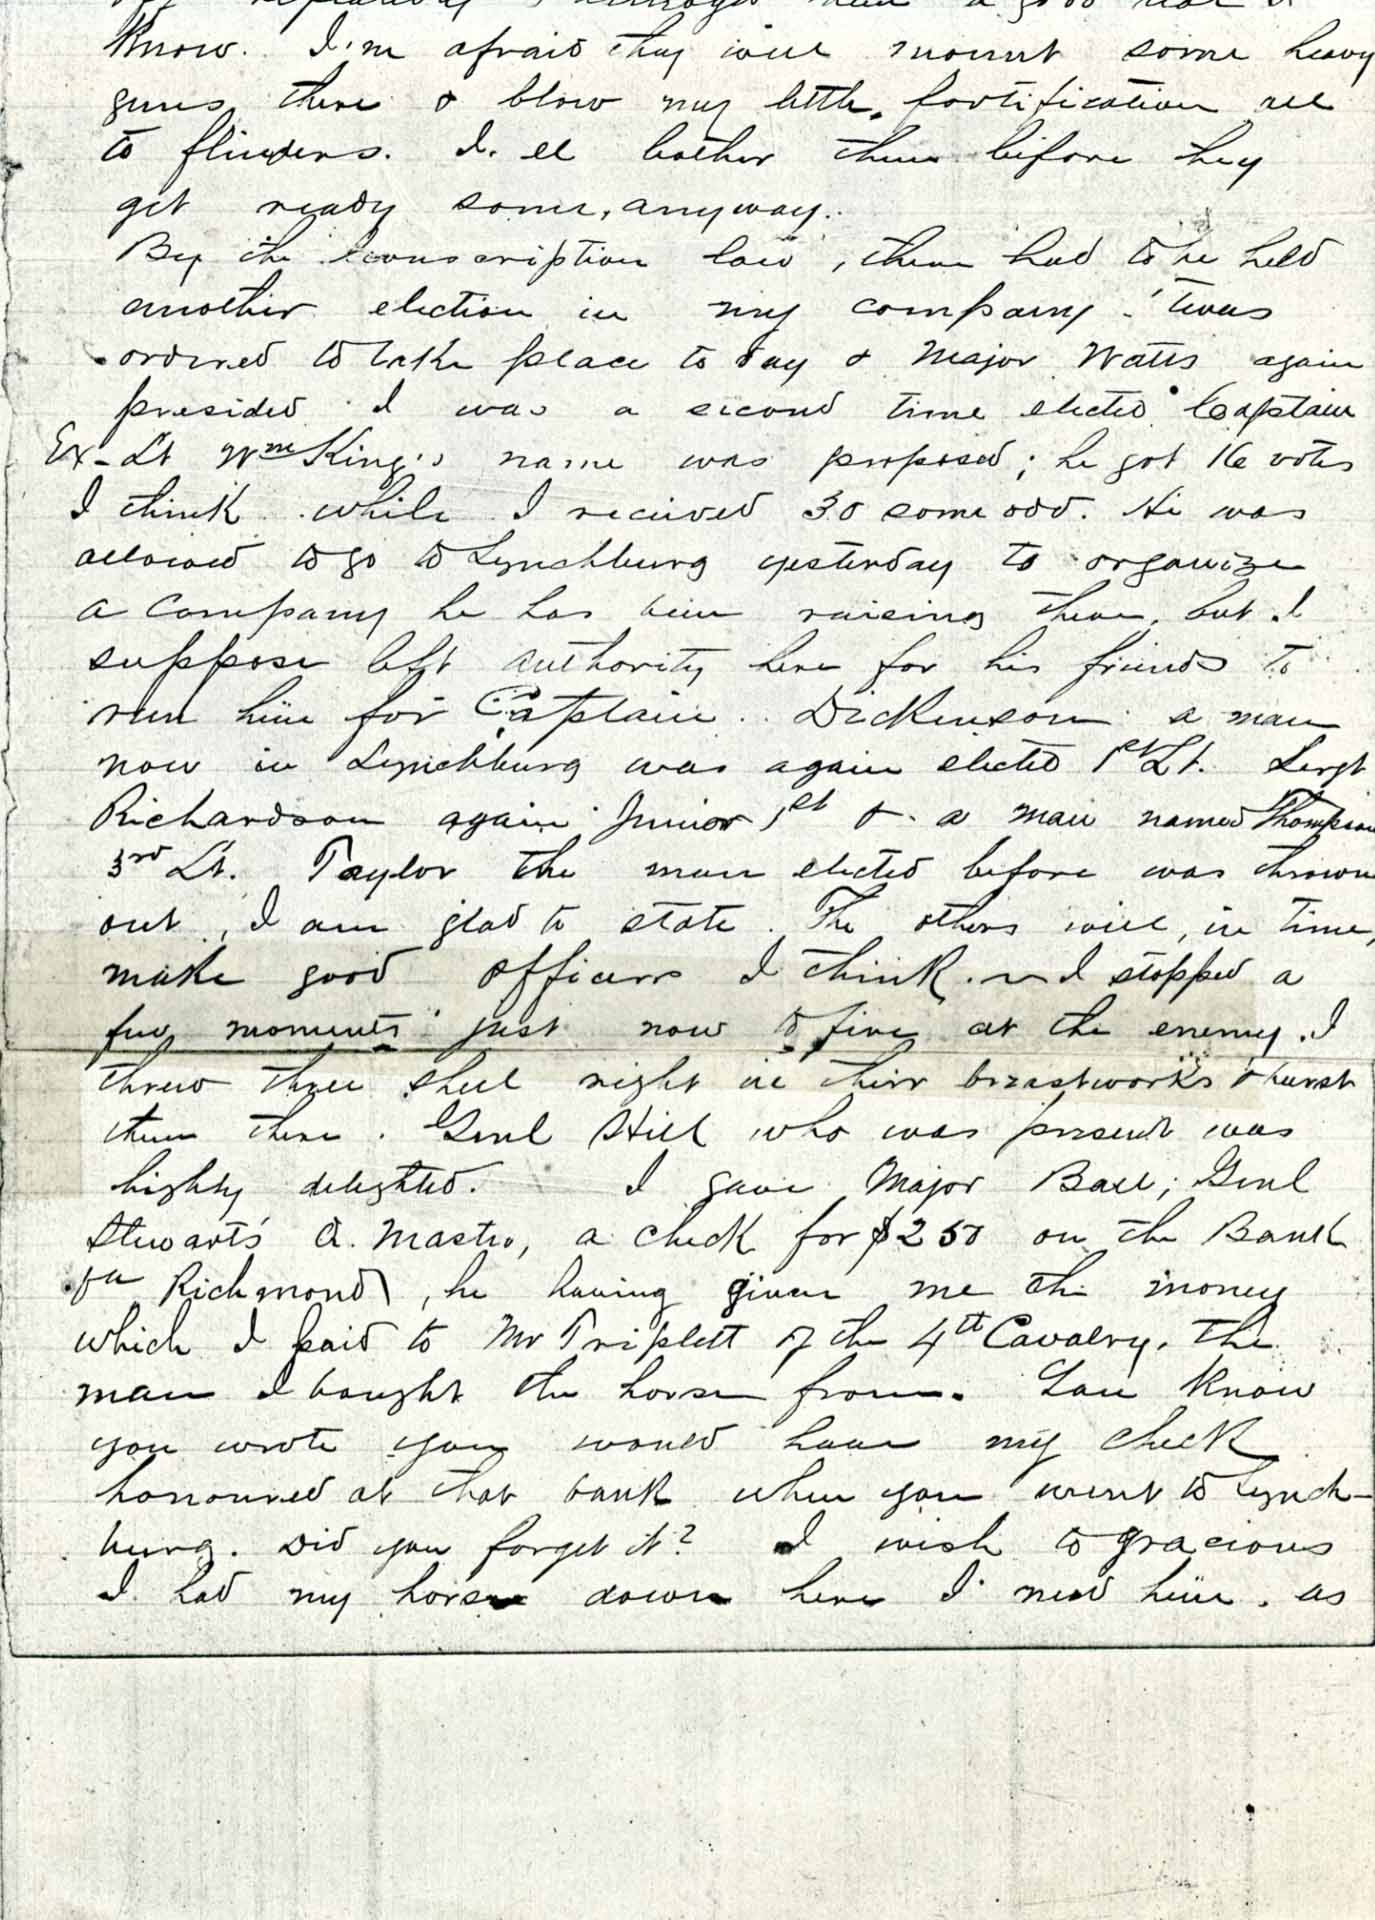 know. I'm afraid they will mount some heavy
guns there & blow my little fortification all
to flinders. I'll bother them before they
get ready some, anyway.
By the conscription law, there had to be held
another election in my company. 'twas
ordered to take place to day & Major Watts again
presided I was a second time elected Captain
Ex-Lt Wm King's name was proposed; he got 16 votes
I think while I received 30 some odd. He was
allowed to go to Lynchburg yesterday to organize
a company he has been raising there, but I
suppose left authority here for his friends to
run him for Captain. Dickinson a man
now in Lynchburg was again elected 1st Lt. Sergt
Richardson again Junior 1st & a man named Thompson
3rd Lt. Taylor the man elected before was thrown
out, I am glad to state. The others will, in time,
make good officers I think. I stopped a
few moments just now to fire at the enemy. I
threw three shell right in their breastworks & burst
them there. Genl Hill who was present was
highly delighted. I gave Major Ball, Genl
Stewart's Q. Master, a check for $250 on the Bank
Richmond, he having given me the money
which I paid to Mr Triplett of the 4th Cavalry, the
man I bought the horse from. You know
you wrote you would have my check
honoured at that bank when you went to Lynch-
burg. Did you forget it? I wish to gracious
I had my horse down here I need him. as